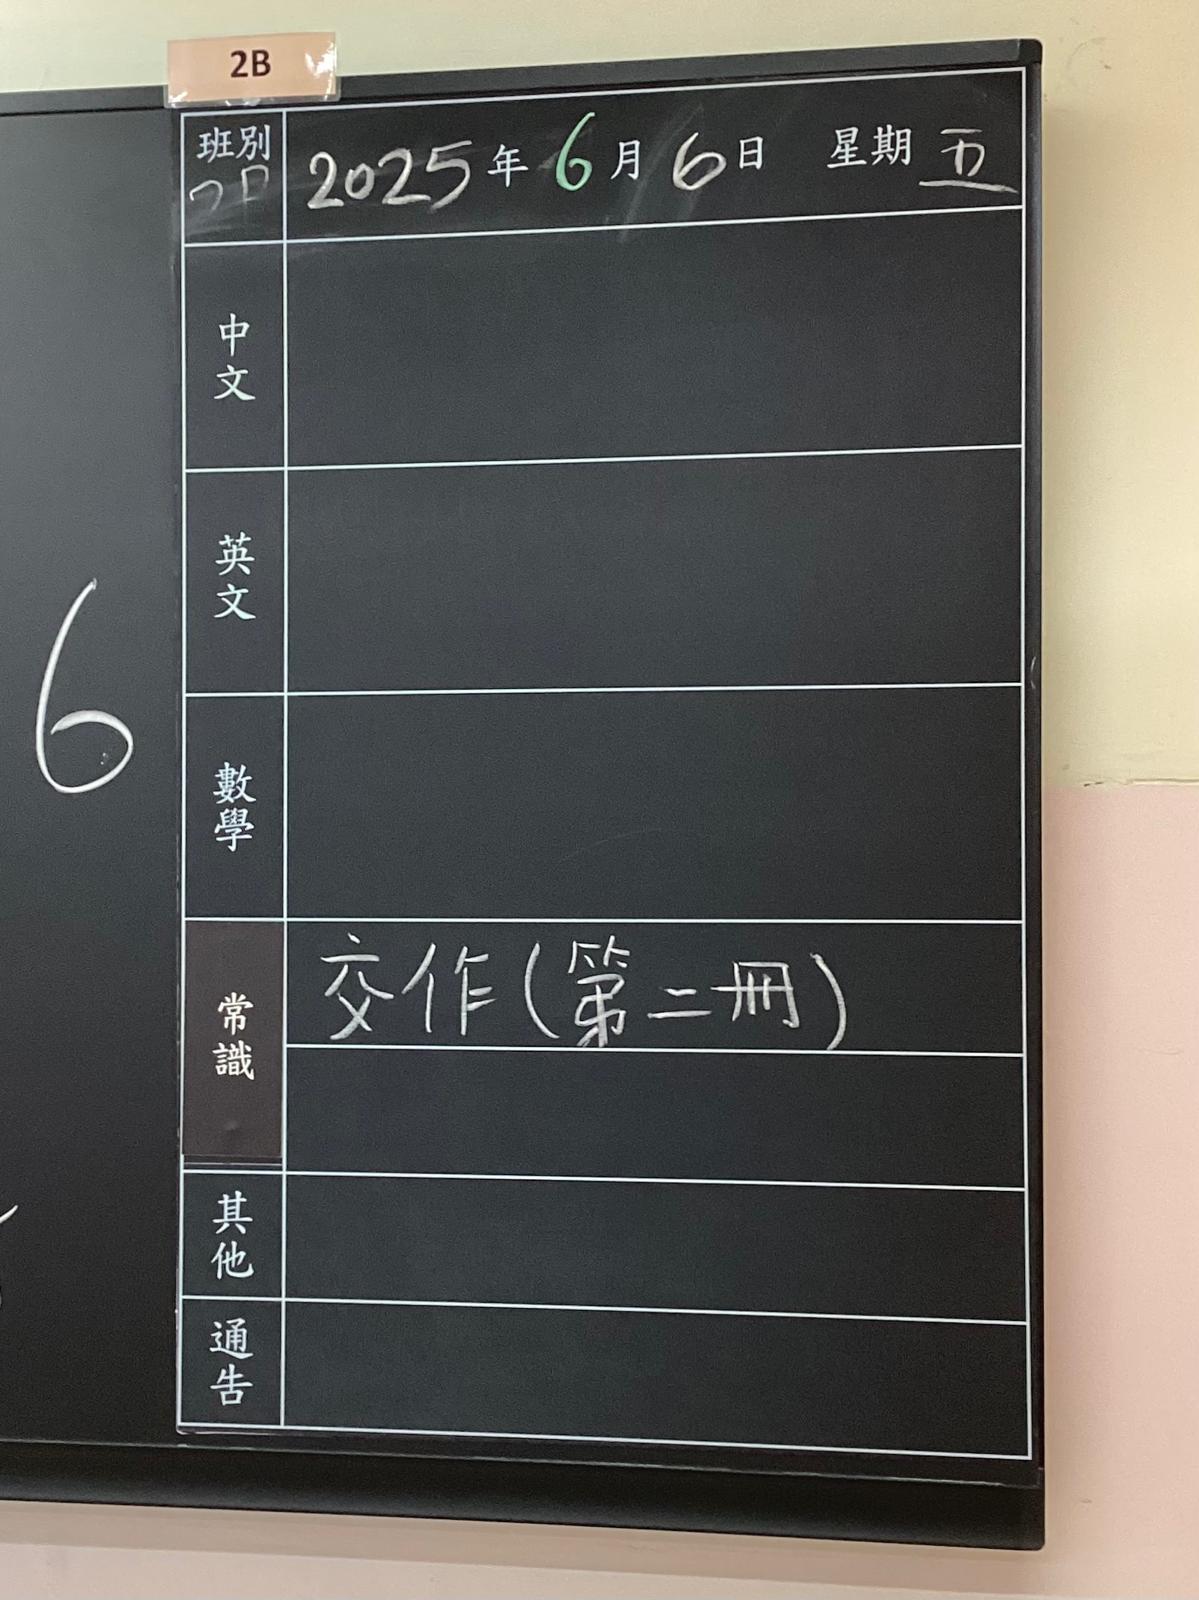 2B
班別 2025年6月6日 星期五
中文
英文
數學
6
常識 交作(第二冊)
其他
通告